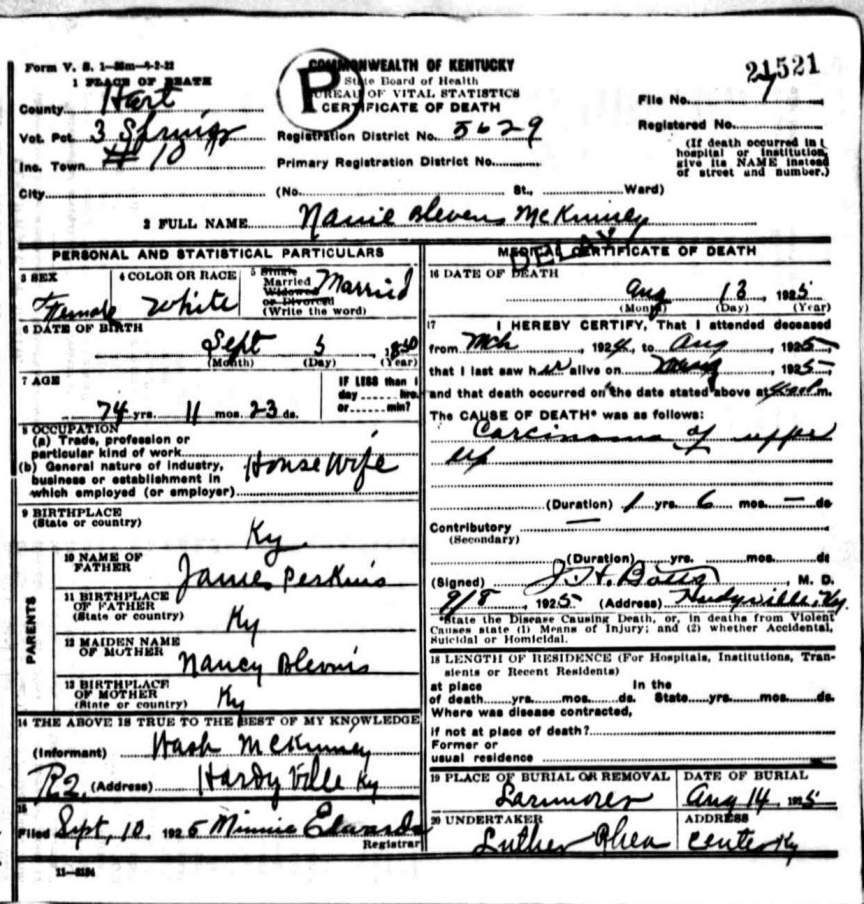 Form V. S. 1-50m-4-2-22
COMMONWEALTH OF KENTUCKY
State Board of Health
BUREAU OF VITAL STATISTICS
CERTIFICATE OF DEATH
P
21521
1 PLACE OF DEATH
County Hart
Vot. Pct. 3 Springs
Inc. Town #10
City
Registration District No. 5629
Primary Registration District No.
(No. St., Ward)
File No. 1
Registered No.
(If death occurred in a hospital or institution, give its NAME instead of street and number.)
2 FULL NAME Nanie Blevens McKinney
PERSONAL AND STATISTICAL PARTICULARS
3 SEX Female
4 COLOR OR RACE White
5 Single Married Widowed or Divorced (Write the word) Married
6 DATE OF BIRTH
Sept 5 1850
(Month) (Day) (Year)
7 AGE
74 yrs. 11 mos. 23 ds.
IF LESS than 1 day hrs. or min?
8 OCCUPATION
(a) Trade, profession or particular kind of work
(b) General nature of industry, business or establishment in which employed (or employer)
House Wife
9 BIRTHPLACE
(State or country) Ky
PARENTS
10 NAME OF FATHER James Perkins
11 BIRTHPLACE OF FATHER
(State or country) Ky
12 MAIDEN NAME OF MOTHER Nancy Blevins
13 BIRTHPLACE OF MOTHER
(State or country) Ky
14 THE ABOVE IS TRUE TO THE BEST OF MY KNOWLEDGE
(Informant) Wash McKinney
R2. (Address) Hardyville Ky
15
Filed Sept, 10. 1925 Minnie Edwards
Registrar
11-3184
MEDICAL CERTIFICATE OF DEATH
DELAY
16 DATE OF DEATH
Aug 13, 1925
(Month) (Day) (Year)
17 I HEREBY CERTIFY, That I attended deceased
from Mch, 1924, to Aug, 1925,
that I last saw her alive on, 1925,
and that death occurred on the date stated above at m.
The CAUSE OF DEATH* was as follows:
Carcinoma of upper
lip
(Duration) 1 yrs. 6 mos. — ds
Contributory —
(Secondary)
(Duration) yrs. mos. ds
(Signed) J. H. Botts, M. D.
9/8, 1925 (Address) Hardyville, Ky.
*State the Disease Causing Death, or, in deaths from Violent Causes state (1) Means of Injury; and (2) whether Accidental, Suicidal or Homicidal.
18 LENGTH OF RESIDENCE (For Hospitals, Institutions, Transients or Recent Residents)
at place In the
of death yrs. mos. ds. State yrs. mos. ds.
Where was disease contracted,
if not at place of death?
Former or
usual residence
19 PLACE OF BURIAL OR REMOVAL Larimores
DATE OF BURIAL Aug 14, 1925
20 UNDERTAKER Luther Rhea
ADDRESS Center Ky